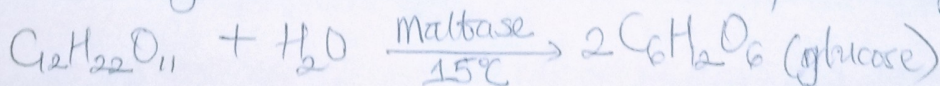 C₁₂H₂₂O₁₁ + H₂O Maltase/15°C → 2C₆H₂O₆ (glucose)